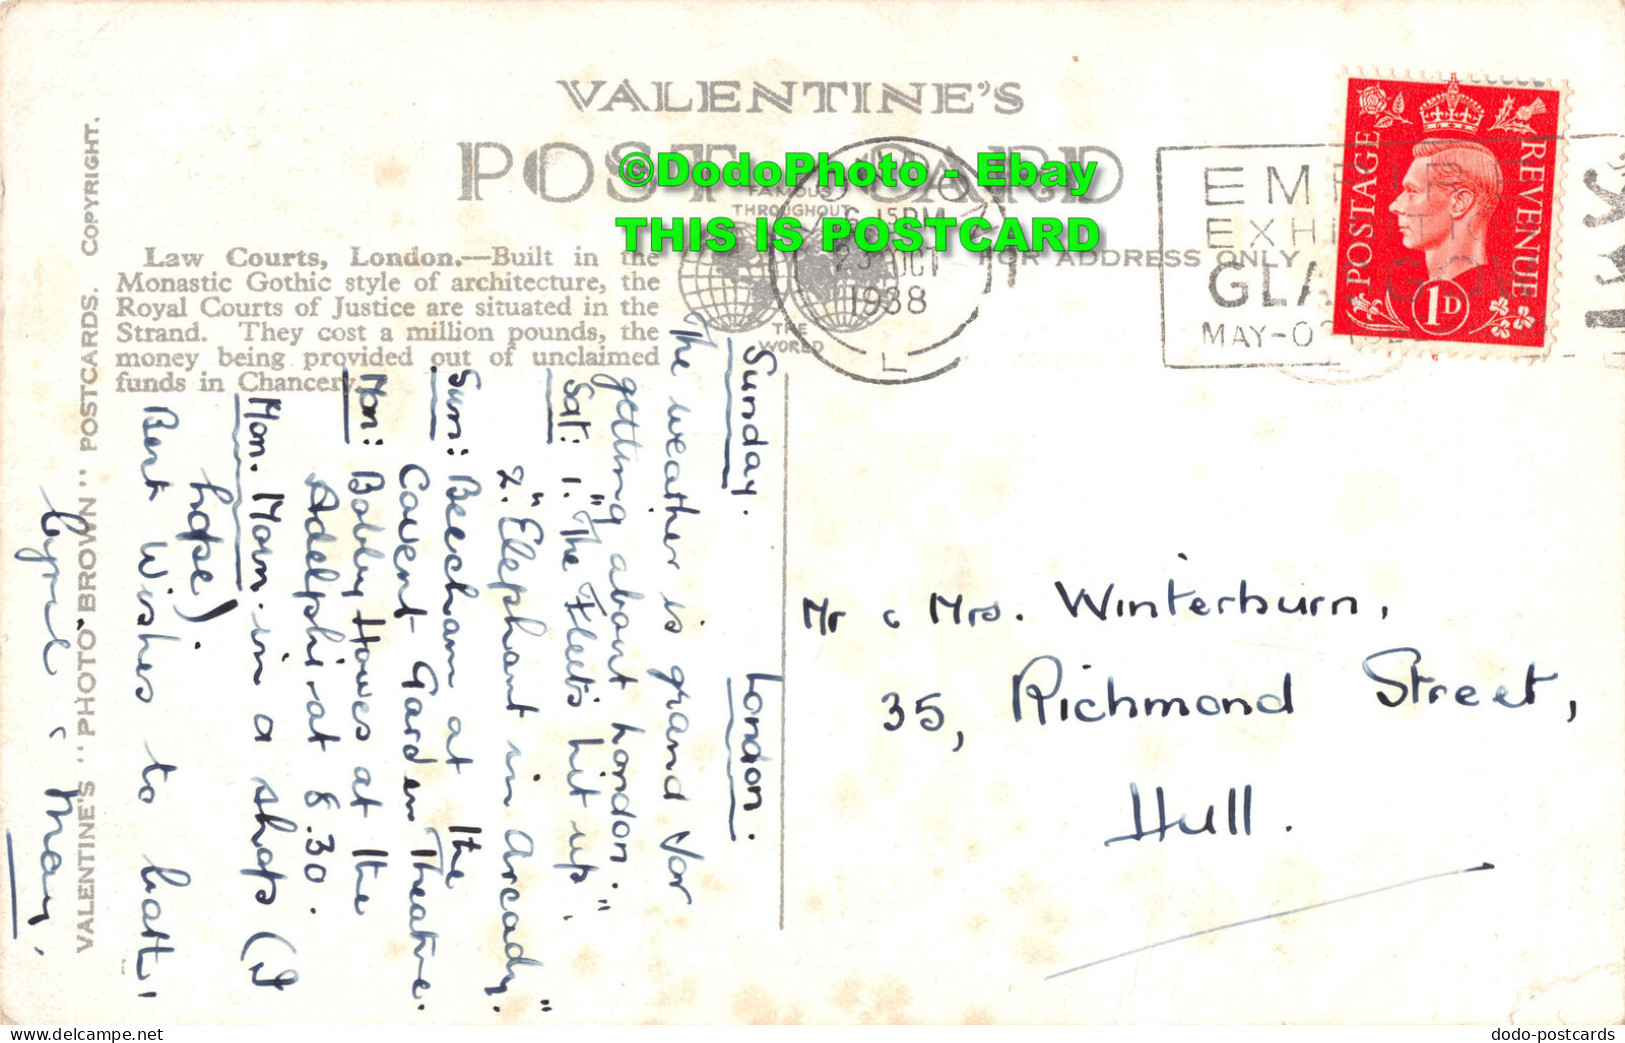 VALENTINE'S
POST CARD
FAMOUS
THROUGHOUT
THE
WORLD
FOR ADDRESS ONLY
©DodoPhoto - Ebay
THIS IS POSTCARD
Law Courts, London.—Built in the
Monastic Gothic style of architecture, the
Royal Courts of Justice are situated in the
Strand. They cost a million pounds, the
money being provided out of unclaimed
funds in Chancery.
VALENTINE'S "PHOTO BROWN" POSTCARDS. COPYRIGHT.
6.15PM
23 OCT
1938
L
EMPIRE
EXHIBITION
GLASGOW
MAY-OCT
POSTAGE
REVENUE
1D
Sunday. London.
The weather is grand for
getting about London.
Sat: 1. "The Fleet's lit up".
2. "Elephant in Arcady."
Sun: Beecham at the
Covent Garden Theatre.
Mon: Bobby Howes at the
Adelphi at 8.30.
Mon. Morn. in a shop (I
hope).
Best Wishes to both,
Cyril & May.
Mr & Mrs. Winterburn,
35, Richmond Street,
Hull.
Bent Wishes
dodo-postcards